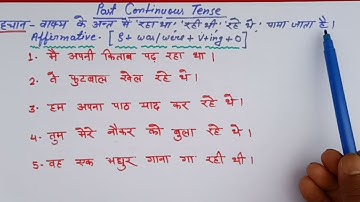 Past Continuous Tense
हचान - वाक्य के अन्त में 'रहा था', 'रही थी', 'रहे थे', पाया जाता है।
Affirmative- [S+ was/were + V+ing + O]
1- मैं अपनी किताब पढ़ रहा था।
2- वे फुटबाल खेल रहे थे।
3- हम अपना पाठ याद कर रहे थे।
4- तुम मेरे नौकर को बुला रहे थे।
5- वह एक मधुर गाना गा रही थी।